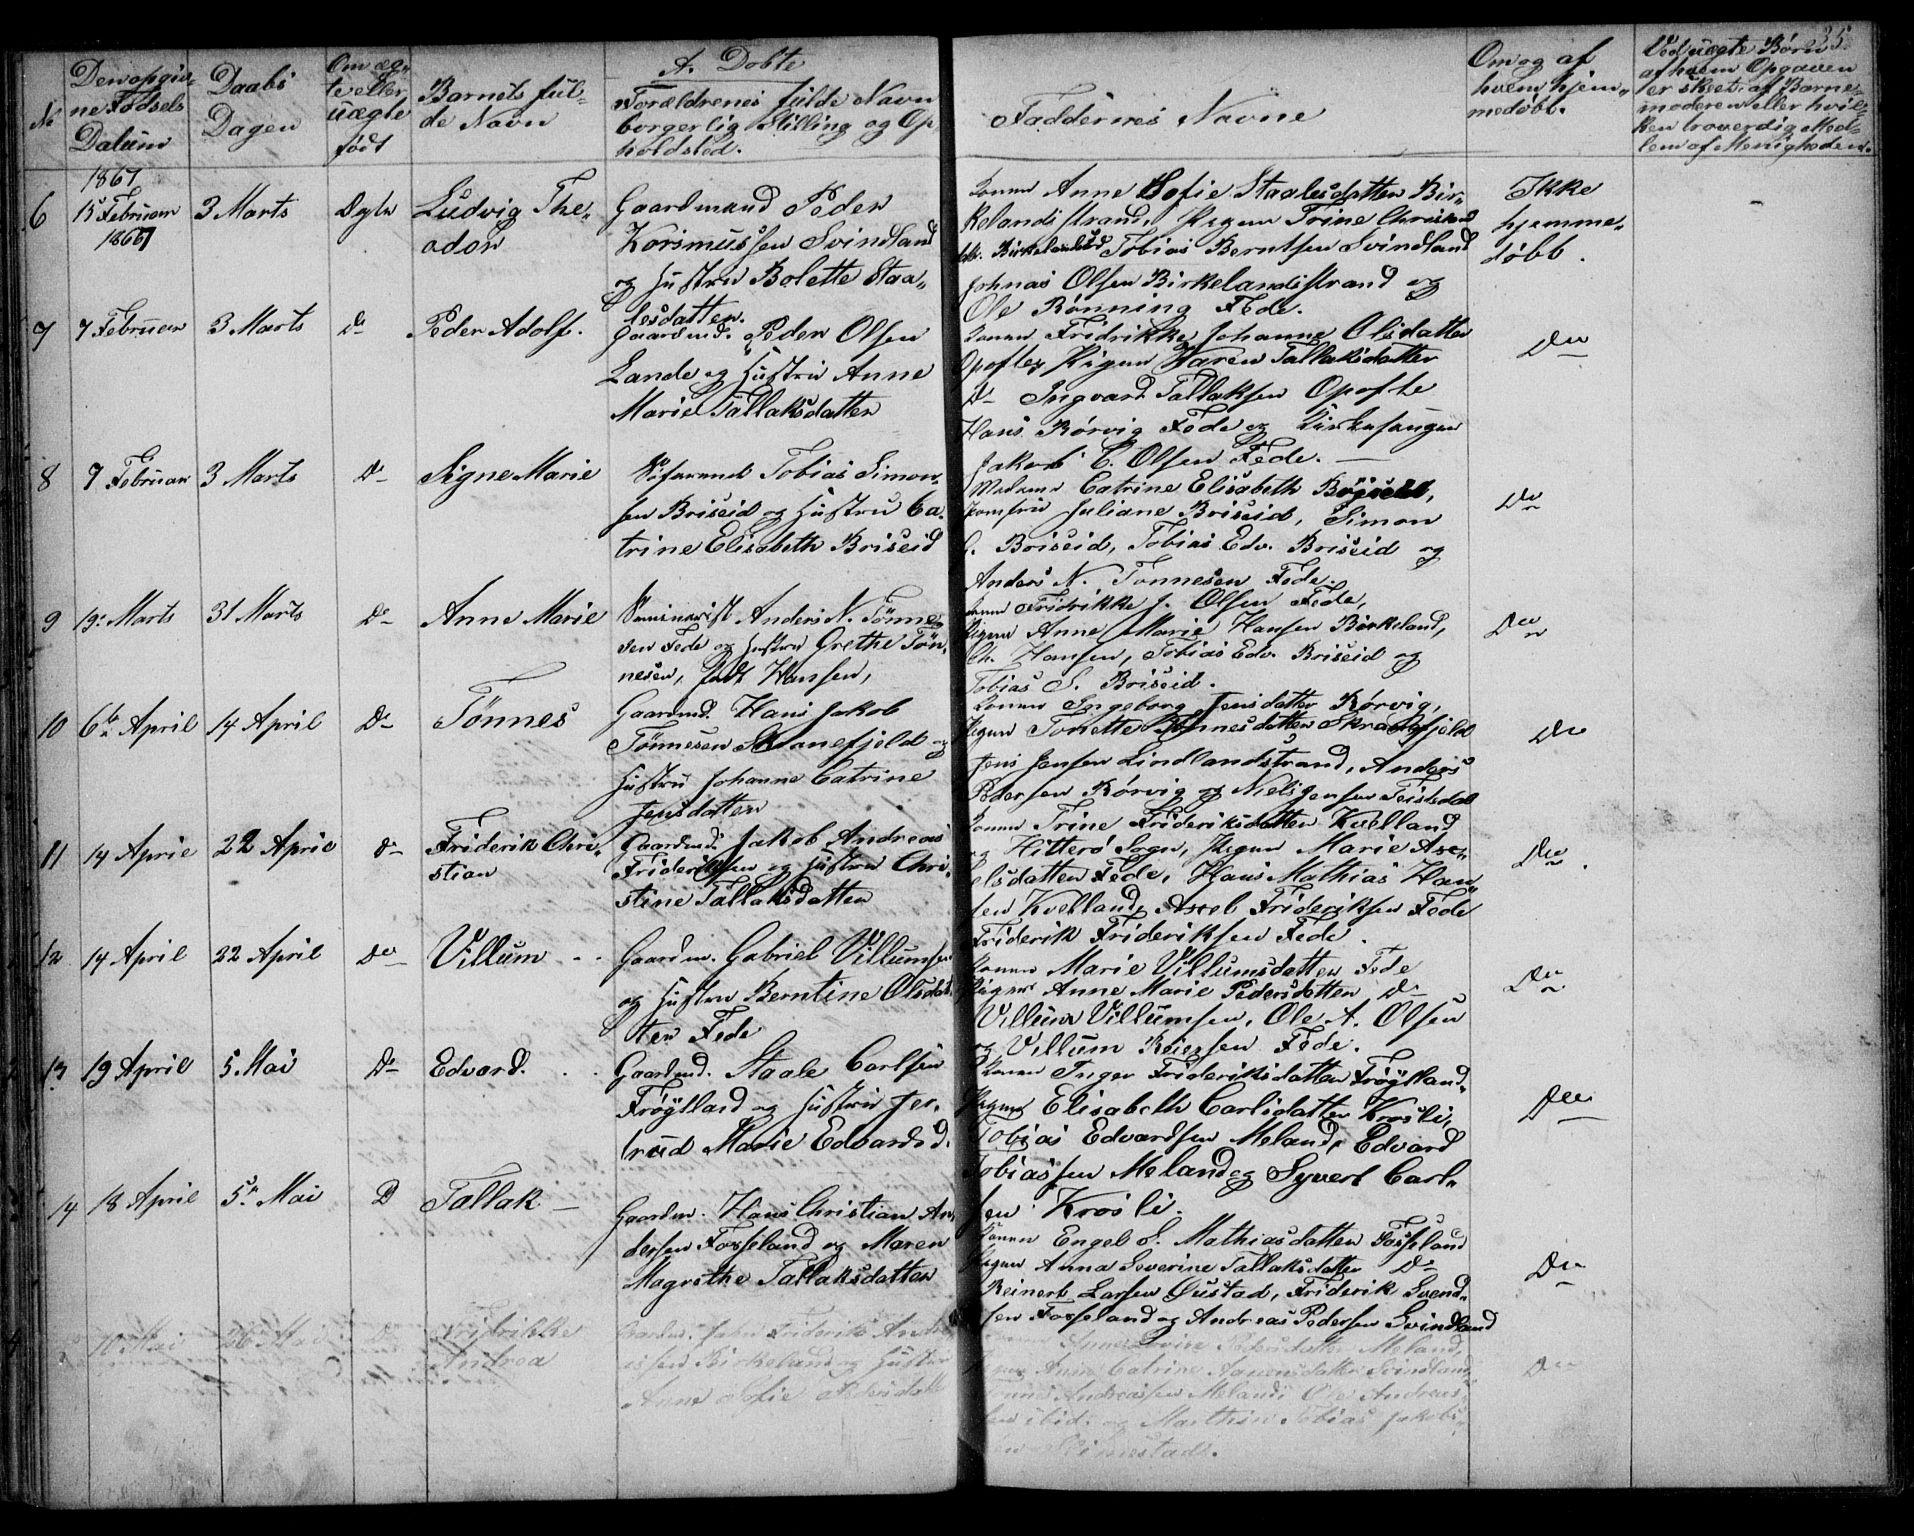 35
No
Den opgiv-
ne Fødsels
Datum
Daabs
Dagen
Om æg-
te eller
uægte
født
Barnets ful-
de Navn
A. Døbte
Forældrenes fulde Navn
borgerlig Stilling og Op
holdsted.
Faddernes Navne
Om og af
hvem hjem-
medøbt.
Ved uægte Børn
af hvem Opgaven
er skeet: af Barne-
moderen eller hvil-
ken troverdig Med-
lem af Menigheden.
1867
6 15 Februar 3 Marts Ægte Ludvig The-
1866
odor
Gaardmand Peder
Korsmussen Svindland
og Hustru Bolette Staa-
lesdatter.
Konen Anne Sofie Staalesdatter Bir-
kelandsstrand, Pigen Trine
Birkeland Tobias Berntsen Svindland
Johnas Olsen Birkelandsstrand og
Ole Rønning Fede.
Ikke
hjemme-
døbt.
7 7 Februar 3 Marts Do Peder Adolf.
Gaardmd. Peder Olsen
Lande og Hustru Anne
Marie Tallaksdatter
Konen Fridrikke Johanne Olsdatter
Opofte, Pigen Karen Tallaksdatter
Do Ingvard Tallaksen Opofte
Hans Rørvig Fede og Kirkesanger
Jakob C. Olsen Fede.
Do
8 7 Februar 3 Marts Do Signe Marie
Tobias Simon-
sen Briseid og Hustru Ca-
trine Elisabeth Briseid
Madame Catrine Elisabeth Briseid,
Jomfru Juliane Briseid, Simon
Briseid, Tobias Edv. Briseid og
Anders N. Tønnesen Fede.
Do
9 19. Marts 31 Marts Do Anne Marie
Seminarist Anders N. Tønne-
sen Fede og Hustru Grethe Tøn-
nesen, født Hansen,
Konen Fridrikke J. Olsen Fede,
Pigen Anne Marie Hansen Birkeland,
Ch. Hansen, Tobias Edv. Briseid og
Tobias S. Briseid.
Do
10 6te April 14 April Do Tønnes
Gaardmd. Hans Jakob
Tønnesen Skranefjeld og
Hustru Johanne Catrine
Jensdatter
Konen Ingeborg Jensdatter Rørvig,
Pigen Tonette Tønnesdatter Skranefjeld
Jens Jensen Lindlandstrand, Andreas
Pedersen Rørvig og Niels Jensen Teistedal
Do
11 14 April 22 April Do Friderik Chri-
stian
Gaardmd. Jakob Andreas
Frideriksen og Hustru Chri-
stine Tallaksdatter
Konen Trine Frideriksdatter Kvelland
og Hitterø Sogn, Pigen Marie Axe-
elsdatter Fede, Hans Mathias Han-
sen Kvelland, Axel Frideriksen Fede
Friderik Frideriksen Fede.
Do
12 14 April 22 April Do Villum
Gaardm. Gabriel Villumsen
og Hustru Berntine Olsdat-
ter Fede
Konen Marie Villumsdatter Fede
Pigen Anne Marie Pedersdatter Do
Villum Villumsen, Ole A. Olsen
og Villum Reiersen Fede.
Do
13 19 April 5 Mai Do Edvard.
Gaardmd. Staale Carlsen
Frøylland og Hustru Jer-
trud Marie Edvardsd.
Konen Inger Frideriksdatter Frøylland,
Pigen Elisabeth Carlsdatter Krosli,
Tobias Edvardsen Meland, Edvard
Tobiassen Meland og Syvert Carl-
sen Krosli.
Do
14 18 April 5 Mai D Tallak
Gaardm. Hans Christian An-
dersen Fosseland og Maren
Magrethe Tallaksdatter
Konen Engel S. Mathiasdatter Fosseland
Pigen Anna Severine Tallaksdatter Do
Reinert Larsen Øustad, Friderik Svend-
sen Fosseland og Andreas Pedersen Svindland
Do
10 Mai 26 Mai Fridrikke
Andrea
John Frideriks Andre-
assen Birkeland og Hustru
Anne Sofie
Pedersdatter Meland,
Anne Catrine Svindland,
Andreassen Meland, Ole Andreas-
sen ibid. og Marthin Tobias Jakobs-